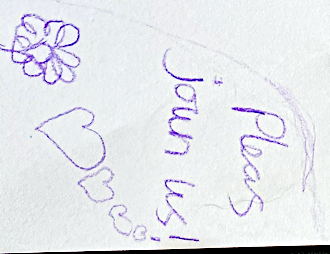 pleas
joun us!